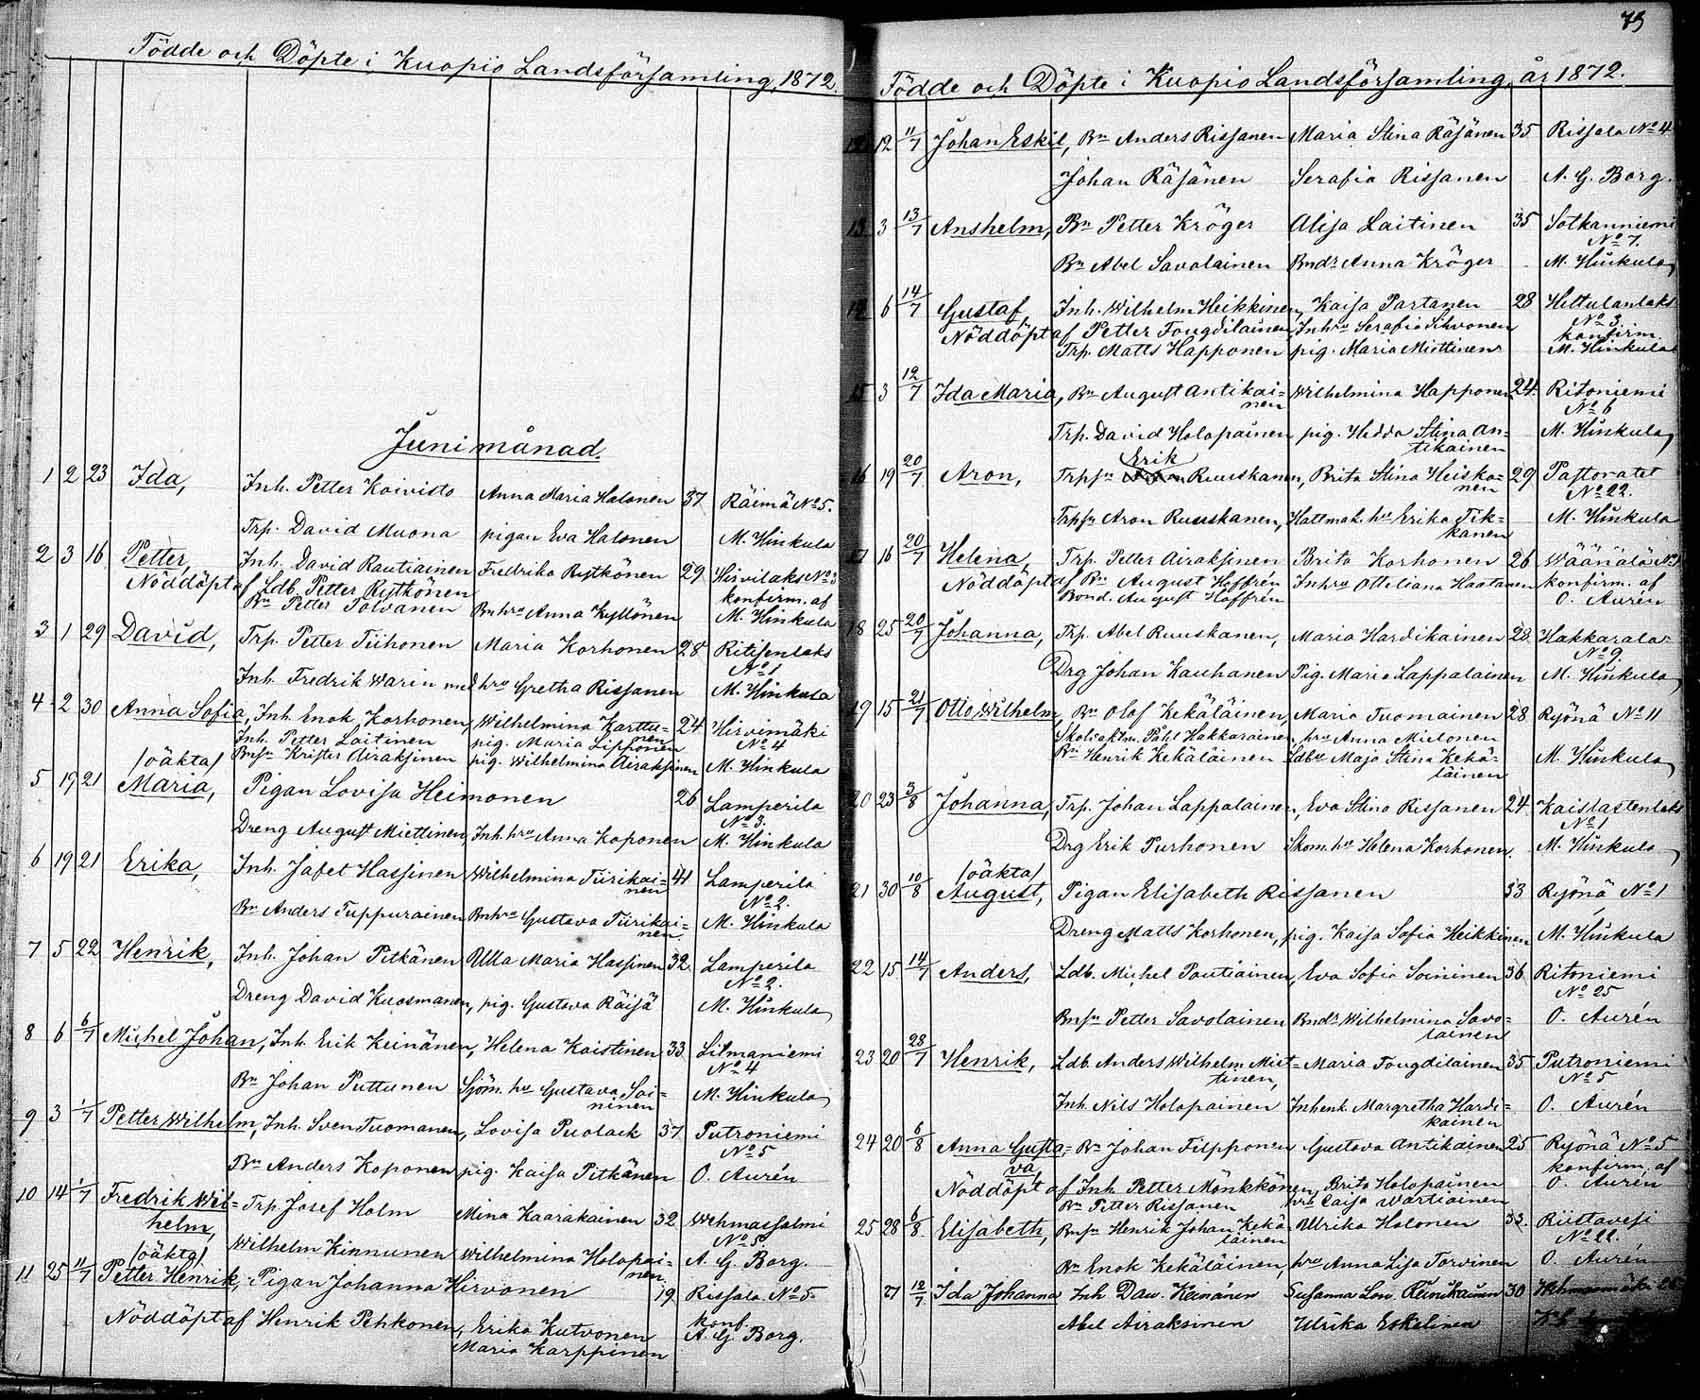 Födde och Döpte i Kuopio Landsförsamling, 1872.
Juni månad.
1 2 23 Ida, Inh. Petter Koivisto Anna Maria Halonen 37 Räimä No 5.
Trp. David Muona pigan Eva Halonen M. Hinkula
2 3 16 Petter, Inh. David Rautiainen Fredrika Rytkönen 29 Hirvilaks No 3
Nöddöpt af Ldb. Petter Rytkönen konfirm. af
Bn Petter Tolvanen Bn hru Anna Kyllönen M. Hinkula
3 1 29 David, Trp. Petter Tiihonen Maria Korhonen 28 Ritisenlaks
No 1
Inh. Fredrik Warin med hru Gretha Rissanen M. Hinkula
4 2 30 Anna Sofia, Inh. Enok Korhonen, Wilhelmina Karttu= 24 Hirvimäki
nen No 4
Inh. Petter Laitinen pig. Maria Lipponen
Bnsn Krister Airaksinen pig. Wilhelmina Airaksinen M. Hinkula
(oäkta)
5 19 21 Maria, Pigan Lovisa Heimonen 26 Lamperila
No 3.
Dreng August Miettinen, Inh. hru Anna Koponen M. Hinkula
6 19 21 Erika, Inh. Jafet Hassinen Wilhelmina Tiirikai= 41 Lamperila
nen No 2.
Bn Anders Tuppurainen Bn hru Gustava Tiirikai= M. Hinkula
nen.
7 5 22 Henrik, Inh. Johan Pitkänen Ulla Maria Hassinen 32. Lamperila
No 2.
Dreng David Kuosmanen, pig. Gustava Räisä M. Hinkula
8 6 6/7 Michel Johan, Inh. Erik Keinänen, Helena Kaistinen 33 Litmaniemi
No 4
Bn Johan Puttunen Sjöm. hu Gustava Soi= M. Hinkula
ninen
9 3 1/7 Petter Wilhelm, Inh. Sven Tuomanen, Lovisa Puolack 37 Putroniemi
No 5
Bn Anders Koponen pig. Kaisa Pitkänen O. Aurén
10 14 1/7 Fredrik Wil= Trp. Josef Holm Mina Kaarakainen 32 Wehmassalmi
helm, No 5
Wilhelm Kinnunen Wilhelmina Holopai= A. G. Borg.
nen
(oäkta)
11 25 11/7 Petter Henrik, Pigan Johanna Hirvonen 19 Rissala No 5
Nöddöpt af Henrik Pehkonen, Erika Kutvonen konf.
Maria Karppinen A. G. Borg.
79
Födde och Döpte i Kuopio Landsförsamling, år 1872.
12 12 11/7 Johan Eskil, Bn Anders Rissanen Maria Stina Räsänen 35 Rissala No 4
Johan Räsänen Serafia Rissanen A. G. Borg.
13 3 13/7 Anshelm, Bn Petter Kröger Alisa Laitinen 35 Sotkanniemi
No 7.
Bn Abel Savolainen Bndr Anna Kröger M. Hinkula
14 6 14/7 Gustaf, Inh. Wilhelm Heikkinen, Kaisa Partanen 28 Hettulanlaks
No 3
Nöddöpt af Petter Tougdilainen, Inhru Serafia Sihvonen konfirm.
Trp. Matts Happonen pig. Maria Miettinen M. Hinkula
15 3 12/7 Ida Maria, Bn August Antikai= Wilhelmina Happonen 24 Ritoniemi
nen No 6
Trp. David Holopainen pig. Hedda Stina An= M. Hinkula
tikainen
16 19 20/7 Aron, Trpsn Erik Ruuskanen, Brita Stina Heisko= 29 Pastoratet
nen No 22.
Trpsn Aron Ruuskanen, Hattmak. hu Erika Tik= M. Hinkula
kanen
17 16 20/7 Helena, Trp. Petter Airaksinen Brita Korhonen 26 Wäänälä No 1
Nöddöpt af Bn August Hoffrén Inhru Ottiliana Haatanen konfirm. af
Bond. August Hoffrén O. Aurén
18 25 20/7 Johanna, Trp. Abel Ruuskanen, Maria Hardikainen 23 Hakkarala
No 9
Drg Johan Kauhanen Pig. Maria Lappalainen M. Hinkula
19 15 21/7 Otto Wilhelm, Bn Olof Kekäläinen, Maria Tuomainen 28 Ryönä No 11
Påhl Hakkarainen, hru Anna Mielonen
Bn Henrik Kekäläinen Ldbhu Maja Stina Kekä= M. Hinkula
läinen
20 23 3/8 Johanna, Trp. Johan Lappalainen, Eva Stina Rissanen 24 Kaislastenlaks
No 1
Drg Erik Purhonen Skom. hu Helena Korhonen. M. Hinkula
(oäkta)
21 30 10/8 August, Pigan Elisabeth Rissanen 33 Ryönä No 1
Dreng Matts Korhonen, pig. Kaisa Sofia Heikkinen M. Hinkula
22 15 14/7 Anders, Ldb. Michel Pautiainen, Eva Sofia Soininen 36 Ritoniemi
No 25
Bnsn Petter Savolainen Bndr Wilhelmina Savo= O. Aurén
lainen
23 20 28/7 Henrik, Ldb. Anders Wilhelm Miet= Maria Tougdilainen 35 Putroniemi
tinen, No 5
Inh. Nils Holopainen Inhenk. Margretha Hardi= O. Aurén
kainen
24 20 6/8 Anna Gusta= Bn Johan Filpponen Gustava Antikainen 25 Ryönä No 5
va, konfirm. af
Nöddöpt af Inh. Petter Mönkkönen, Brita Holopainen O. Aurén
Bn Petter Rissanen hru Caisa Wartiainen
25 28 6/8 Elisabeth, Bnsn Henrik Johan Kekä= Ulrika Halonen 33. Riistavesi
läinen No 22.
Bn Enok Kekäläinen, hru Anna Lisa Torvinen O. Aurén
27 12/7 Ida Johanna Inh Dav. Keinänen Susanna Lov. Reinikainen 30
Abel Airaksinen Ulrika Eskelinen